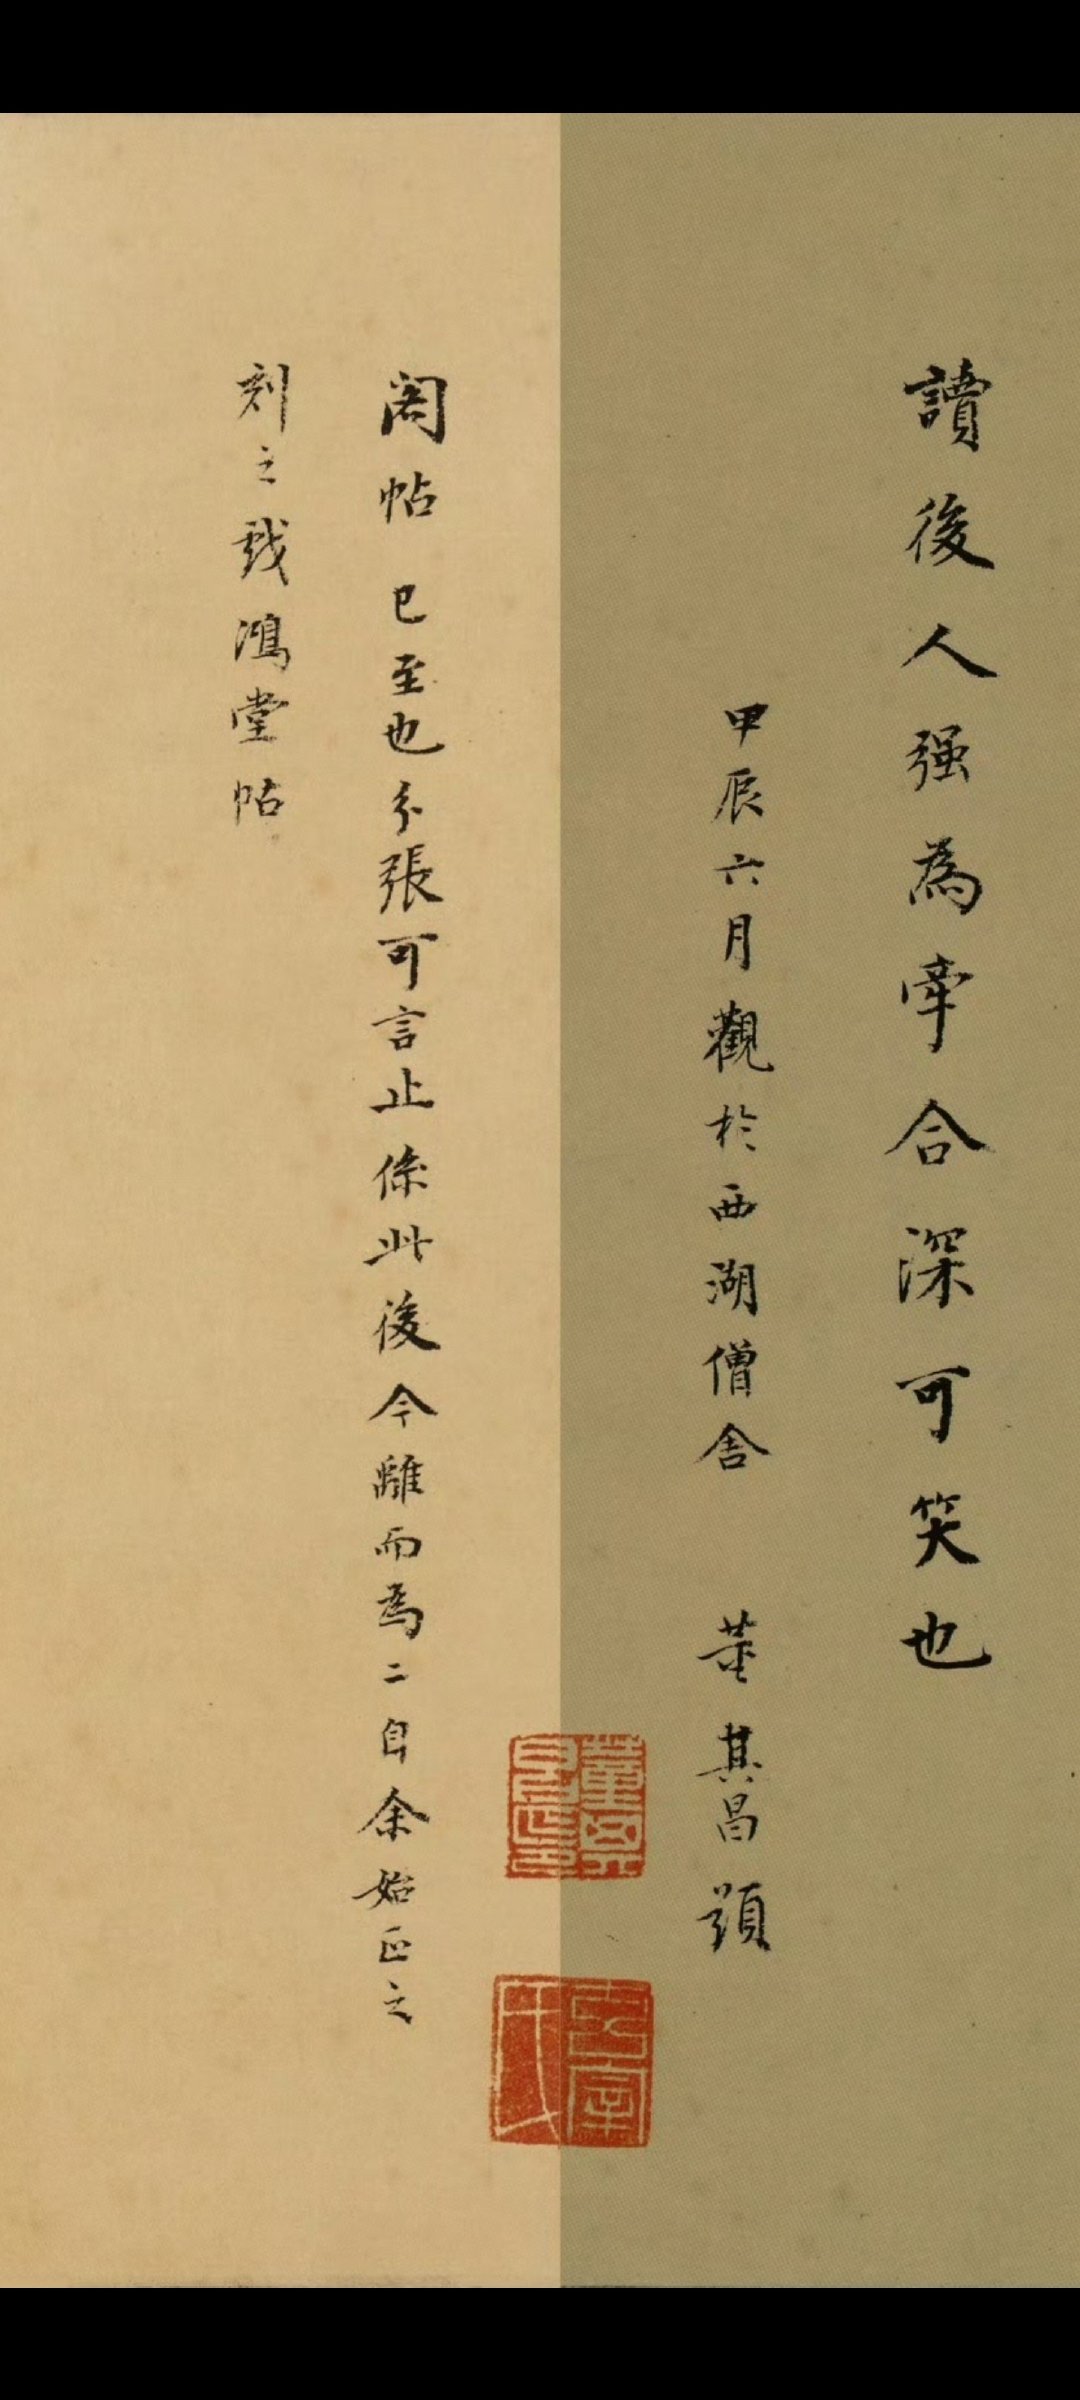 讀後人强為牽合深可笑也
甲辰六月觀於西湖僧舍 董其昌題
閣帖已至也分張可言止係此後今離而為二自余始正之
刻之戏鴻堂帖
董其昌印
太史氏